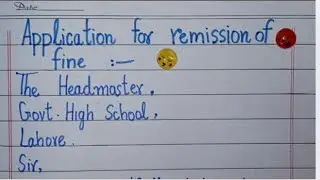 Date
Application for remission of
fine :—
The Headmaster.
Govt. High School,
Lahore.
Sir,